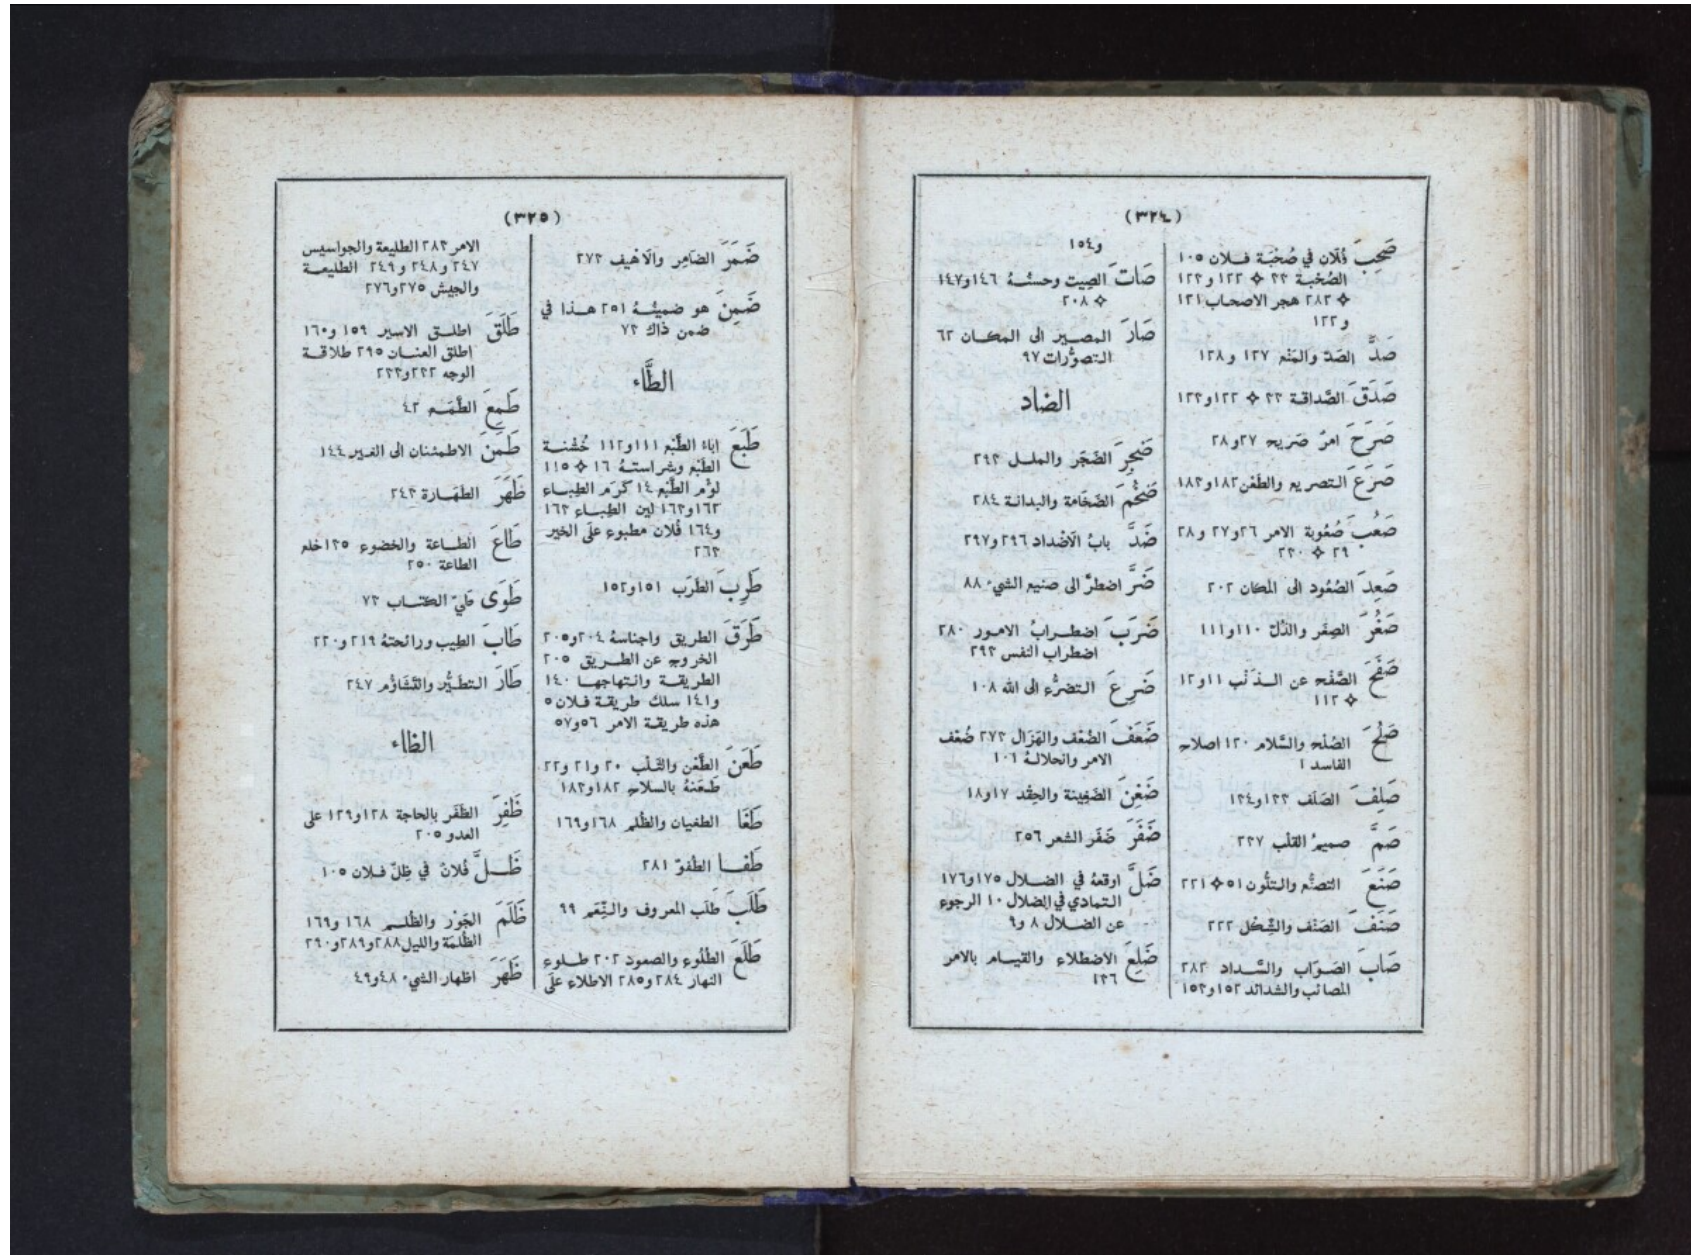 (٣٢٤)
صَحِبَ فُلَان في صُحْبَة فـلان ١٠٥
الصُحْبَة ٢٣ ✧ ١٢٢ و١٢٣
✧ ٢٨٢ هجر الاصحاب ١٢١
و١٢٢
صَدَّ الصَدّ والمَنْع ١٢٧ و١٢٨
صَدَقَ الصَّداقـة ٢٣ ✧ ١٢٢ و١٢٣
صَرَحَ امرٌ صَرِيح ٢٧ و٢٨
صَرَعَ التصريع والطَعْن ١٨٢ و١٨٣
صَعُبَ صُعُوبة الامر ٢٦ و٢٧ و٢٨
٢٩ ✧ ٢٣٠
صَعِدَ الصُعُود الى المكان ٢٠٢
صَغُرَ الصِغَر والذُلّ ١١٠ و١١١
صَفَحَ الصَّفْح عن الـذَنْب ١١ و١٢
✧ ١١٢
صَلُحَ الصُلْح والسَّلام ١٢٠ اصلاح
الفاسد ١
صَلِفَ الصَلَف ١٣٣ و١٣٤
صَمَّ صميمُ القلب ٢٣٧
صَنَعَ التصنُّع والتلُّون ٥١ ✧ ٢٢١
صَنَفَ الصَنْف والشِّكْل ٢٢٢
صَابَ الصَوَاب والسَّداد ٢٨٢
المصائب والشدائد ١٥٢ و١٥٣
و١٥٤
صَاتَ الصِيت وحسنُـهُ ١٤٦ و١٤٧
✧ ٢٠٨
صَارَ المصـير الى المكـان ٦٢
التصوُّرات ٩٧
الضاد
ضَجِرَ الضَجَر والملـل ٢٩٣
ضَخُمَ الضَخَامة والبدانـة ٢٨٤
ضَدَّ بابُ الأَضْداد ٢٩٦ و٢٩٧
ضَرَّ اضطرَّ الى صنيع الشيء ٨٨
ضَرَبَ اضطـرابُ الامـور ٢٨٠
اضطراب النفس ٢٩٣
ضَرِعَ التضرُّع الى الله ١٠٨
ضَعُفَ الضُعْف والهَزَال ٢٧٣ ضُعْف
الامر وانحلالـهُ ١٠٦
ضَغِنَ الضَغِينة والحِقْد ١٧ و١٨
ضَفَرَ ضَفَر الشعر ٢٥٦
ضَلَّ اوقعهُ في الضـلال ١٧٥ و١٧٦
التمادي في الضلال ١٠ الرجوع
عن الضـلال ٨ و٩
ضَلِعَ الاضطلاع والقيـام بالامر
١٣٦
(٣٢٥)
ضَمَرَ الضَامِر والأَهْيف ٢٧٣
ضَمِنَ هو ضمينُـهُ ٢٥١ هـذا في
ضمن ذاك ٧٣
الطَّاء
طَبَعَ اباءَ الطَّبْع ١١١ و١١٢ خُشْنـة
الطَبْع وشراستـهُ ١٦ ✧ ١١٥
لؤم الطَبْع ١٤ كَرَم الطبـاع
١٦٢ و١٦٣ لين الطبـاع ١٦٣
و١٦٤ فُلان مطبوع علَى الخير
٢٦٣
طَرِبَ الطَرَب ١٥١ و١٥٢
طَرَقَ الطريق واجناسهُ ٢٠٤ و٢٠٥
الخروج عن الطـريق ٢٠٥
الطريقـة وانتهاجهـا ١٤٠
و١٤١ سلك طريقـة فـلان ٥
هذه طريقـة الامر ٥٦ و٥٧
طَعَنَ الطَّعْن والثَلْب ٢٠ و٢١ و٢٢
طَعَنَهُ بالسلاح ١٨٢ و١٨٣
طَغَا الطغيان والظُلم ١٦٨ و١٦٩
طَفـا الطُفوّ ٢٨١
طَلَبَ طَلَب المعروف والنِّعَم ٩٩
طَلَعَ الطُلُوع والصعود ٢٠٢ طـلوع
النهار ٢٨٤ و٢٨٥ الاطلاع علَى
الامر ٢٨٣ الطليعة والجواسيس
٢٤٧ و٢٤٨ و٢٤٩ الطليعـة
والجيش ٢٧٥ و٢٧٦
طَلَقَ اطلـق الاسير ١٥٩ و١٦٠
اطلق العنـان ٢٩٥ طلاقـة
الوجه ٢٣٢ و٢٣٣
طَمِعَ الطَّمَـع ٤٢
طَمَنَ الاطمئنان الى الغـير ١٤٤
طَهَرَ الطَهَـارة ٢٤٣
طَاعَ الطـاعة والخضوع ١٣٥ خلع
الطاعة ٢٥٠
طَوَى طَيّ الكتـاب ٧٣
طَابَ الطِيب ورائحتهُ ٢١٩ و٢٢٠
طَارَ التطَيُّر والتَّشَاؤُم ٢٤٧
الظاء
ظَفِرَ الظَفَر بالحاجة ١٢٨ و١٢٩ علَى
العدو ٢٠٥
ظَـلَّ فُلان في ظِلّ فـلان ١٠٥
ظَلَمَ الجَوْر والظُلـم ١٦٨ و١٦٩
الظُلمَة والليل ٢٨٨ و٢٨٩ و٢٩٠
ظَهَرَ اظهار الشيء ٤٨ و٤٩